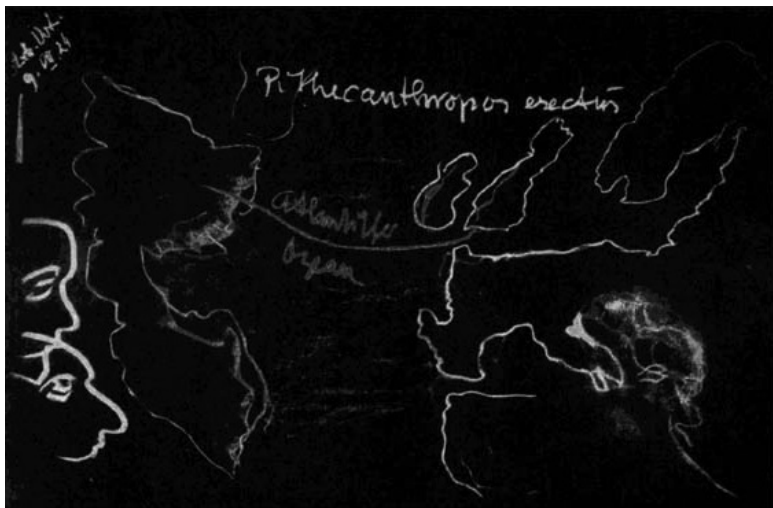 9. VII 24
Pithecanthropos erectus
atlantischer
Ozean